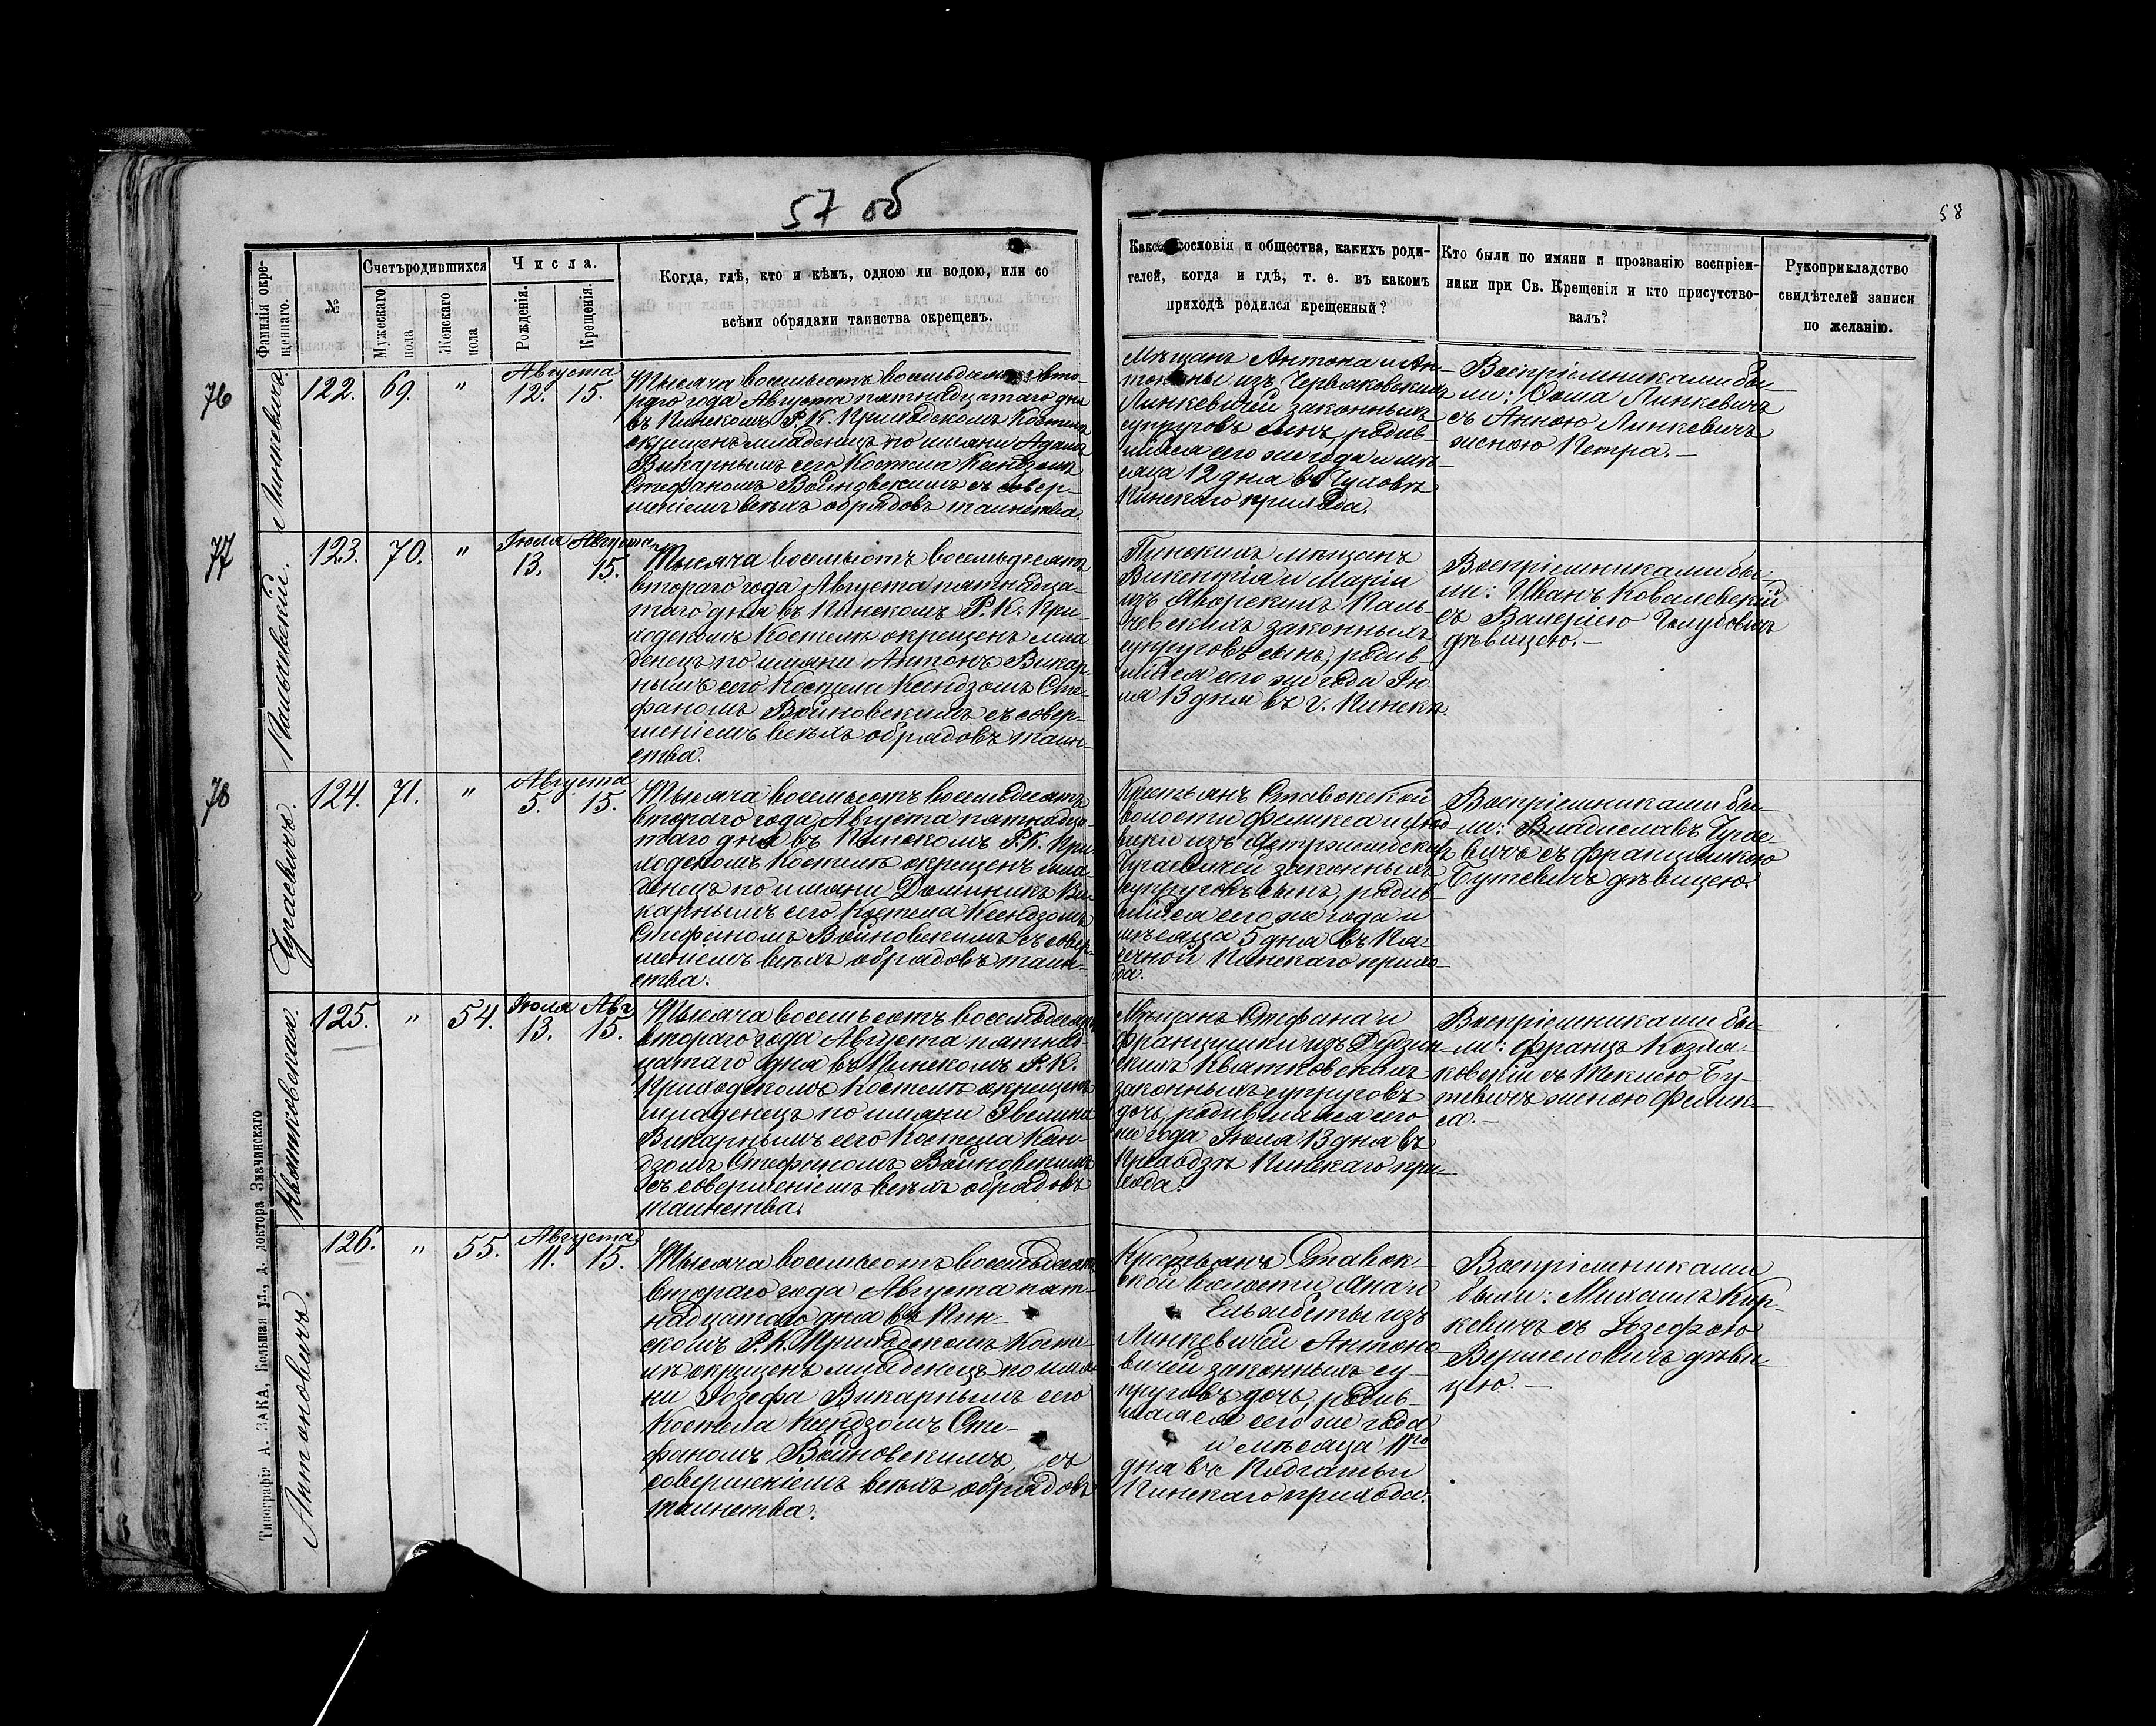 57 об
58
Фамиліи окре-
щеннаго.
№
Счетъ родившихся
Мужескаго
пола
Женскаго
пола
Числа.
Рожденія.
Крещенія.
Когда, гдѣ, кто и кѣмъ, одною ли водою, или со
всѣми обрядами таинства окрещенъ.
сословія и общества, какихъ роди-
телей, когда и гдѣ, т. е. въ какомъ
приходѣ родился крещенный?
Кто были по имяни и прозванію воспріем-
ники при Св. Крещенія и кто присутство-
валъ?
Рукоприкладство
свидѣтелей записи
по желанію.
76
Линкевичъ.
122.
69.
"
Августа
12. 15.
Тысяча восемьсотъ восемьдесятъ вто-
раго года Августа пятнадцатаго дня
въ Пинскомъ Р. К. Приходскомъ Костелѣ
окрещенъ младенецъ по имяни Адамъ
Викарнымъ сего Костела Ксендзомъ
Стефаномъ Войновскимъ съ совер-
шеніемъ всѣхъ обрядовъ таинства.
Мѣщанъ Антона и Ан-
изъ Червяковскихъ
Линкевичей законныхъ
супруговъ сынъ, родив-
шійся сего же года и мѣ-
сяца 12 дня въ
Пинскаго прихода.
Воспріемниками бы-
ли: Ѳома Линкевичъ
съ Анною Линкевичъ
женою Петра. —
77
Кальчевскій.
123.
70.
"
Іюля Августа
13. 15.
Тысяча восемьсотъ восемьдесятъ
втораго года Августа пятнадца-
таго дня въ Пинскомъ Р. К. При-
ходскомъ Костелѣ окрещенъ мла-
денецъ по имяни Антонъ Викар-
нымъ сего Костела Ксендзомъ Сте-
фаномъ Войновскимъ съ совер-
шеніемъ всѣхъ обрядовъ таин-
ства.
Пинскихъ мѣщанъ
Викентія и Маріи
изъ Яворскихъ Каль-
чевскихъ законныхъ
супруговъ сынъ, родив-
шійся сего же года Ію-
ля 13 дня въ г. Пинскѣ.
Воспріемниками бы-
ли: Иванъ Ковалевскій
съ Валеріею Голубовичъ
дѣвицею. —
78
124.
71.
"
Августа
5. 15.
Тысяча восемьсотъ восемьдесятъ
втораго года Августа пятнадца-
таго дня въ Пинскомъ Р. К. При-
ходскомъ Костелѣ окрещенъ мла-
денецъ по имяни Доминикъ Ви-
карнымъ сего Костела Ксендзомъ
Стефаномъ Войновскимъ съ совер-
шеніемъ всѣхъ обрядовъ таин-
ства.
Крестьянъ Ставокской
волости Феликса и Люд-
вики изъ
законныхъ
супруговъ сынъ, родив-
шійся сего же года и
мѣсяца 5 дня въ
Пинскаго прихо-
да.
Воспріемниками бы-
ли: Владиславъ
съ Францишкою
Бутевичъ дѣвицею.
Квятковская.
125.
"
54.
Іюля Авг
13. 15.
Тысяча восемьсотъ восемьдесятъ
втораго года Августа пятнад-
цатаго дня въ Пинскомъ Р. К.
Приходскомъ Костелѣ окрещенъ
младенецъ по имяни Эвелина
Викарнымъ сего Костела Ксен-
дзомъ Стефаномъ Войновскимъ
съ совершеніемъ всѣхъ обрядовъ
таинства.
Мѣщанъ Стефана и
Францишки изъ
Квятковскихъ
законныхъ супруговъ
дочь, родившаяся сего
же года Іюля 13 дня въ
Пинскаго при-
хода.
Воспріемниками бы-
ли: Францъ Козля-
ковскій съ Теклею Бу-
тевичъ женою Фелик-
са. —
Антоновичъ
126.
"
55.
Августа
11. 15.
Тысяча восемьсотъ восемьдесятъ
втораго года Августа пят-
надцатаго дня въ Пин-
скомъ Р. К. Приходскомъ Косте-
лѣ окрещенъ младенецъ по имя-
ни Іозефа Викарнымъ сего
Костела Ксендзомъ Сте-
фаномъ Войновскимъ, съ
совершеніемъ всѣхъ обрядовъ
таинства.
Крестьянъ Ставок-
ской волости
Ельжбеты изъ
Линкевичей Антоно-
вичей законныхъ су-
пруговъ дочь, родив-
шаяся сего же года
и мѣсяца 11го
дня въ
Пинскаго прихода.
Воспріемниками
были: Михаилъ Кир-
кевичъ съ Іозефою
дѣви-
цею. —
Типографія А. ЗАКА, Большая ул., д. доктора Змачинскаго